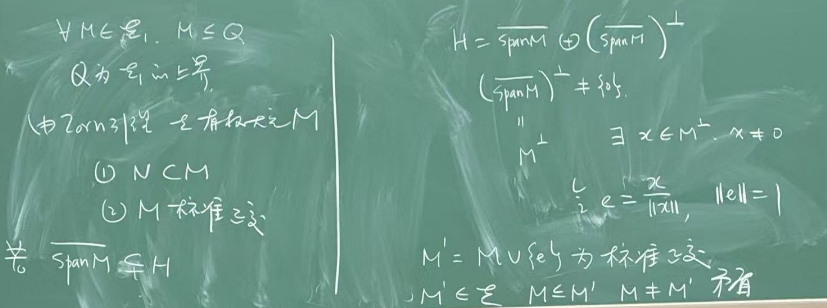 ∀ M ∈ ℰ₁. M ≤ Q
Q为 ℰ₁ 的上界.
由Zorn引理 ℰ有极大元M
① N ⊂ M
② M 标准正交
若 \overline{span M} ⊊ H
H = \overline{span M} ⊕ (\overline{span M})^⊥
(\overline{span M})^⊥ ≠ {0}.
=
M^⊥ ∃ x ∈ M^⊥. x ≠ 0
令 e = x/||x||, ||e|| = 1
M' = M ∪ {e} 为标准正交.
M' ∈ ℰ M ≤ M' M ≠ M' 矛盾